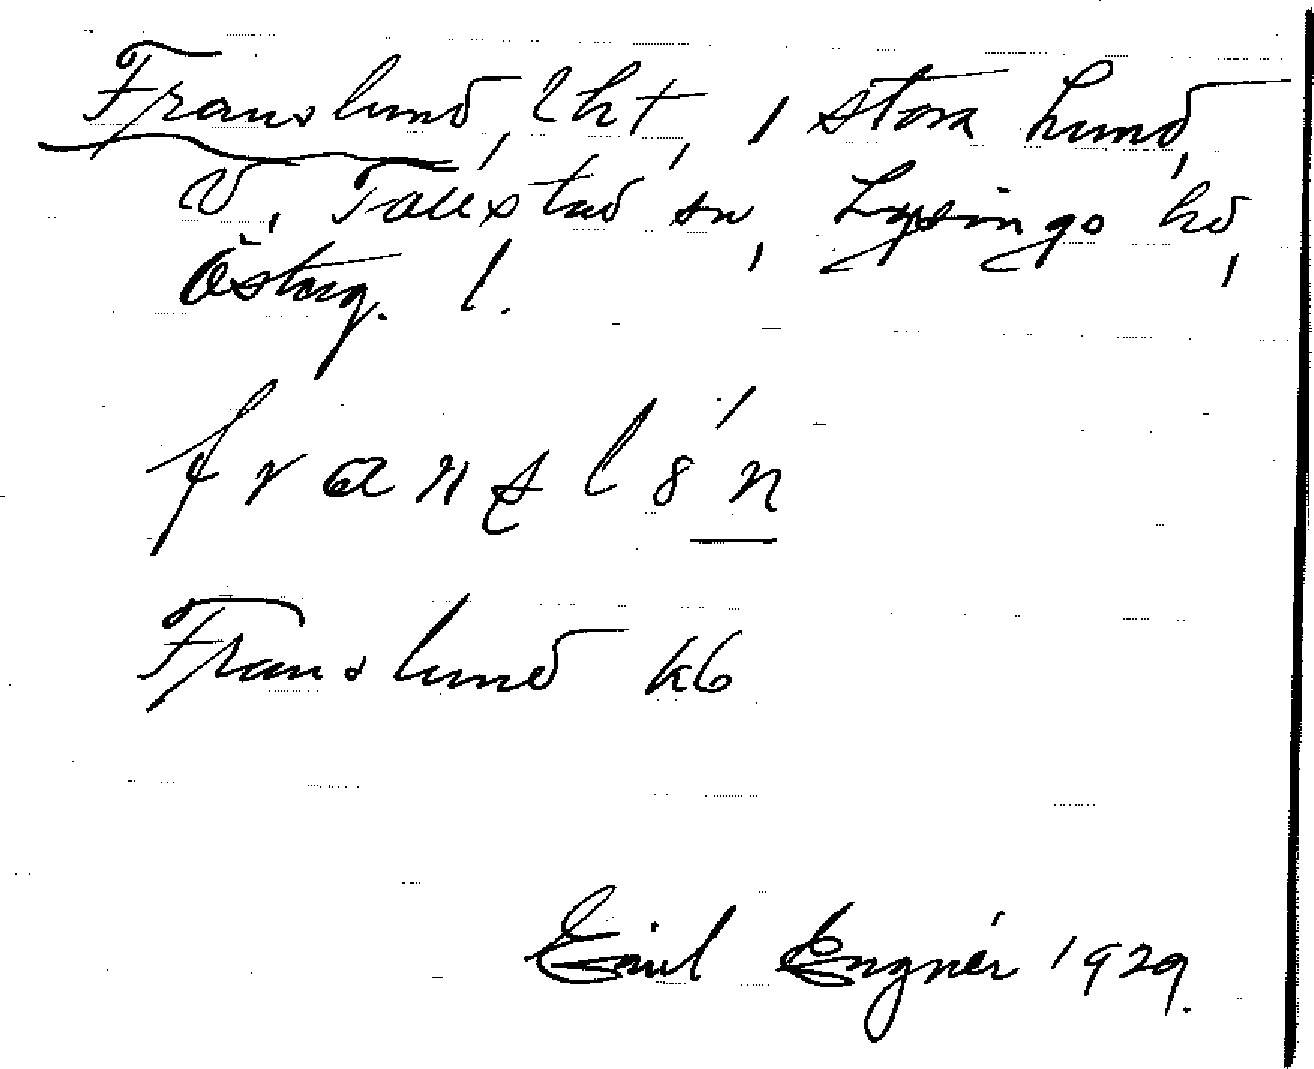 Franslund, lht, / Stora Lund,
V. Tollstad sn, Lysings hd,
Österg. l.
franslun
Franslund kb
Emil Engnér 1929.